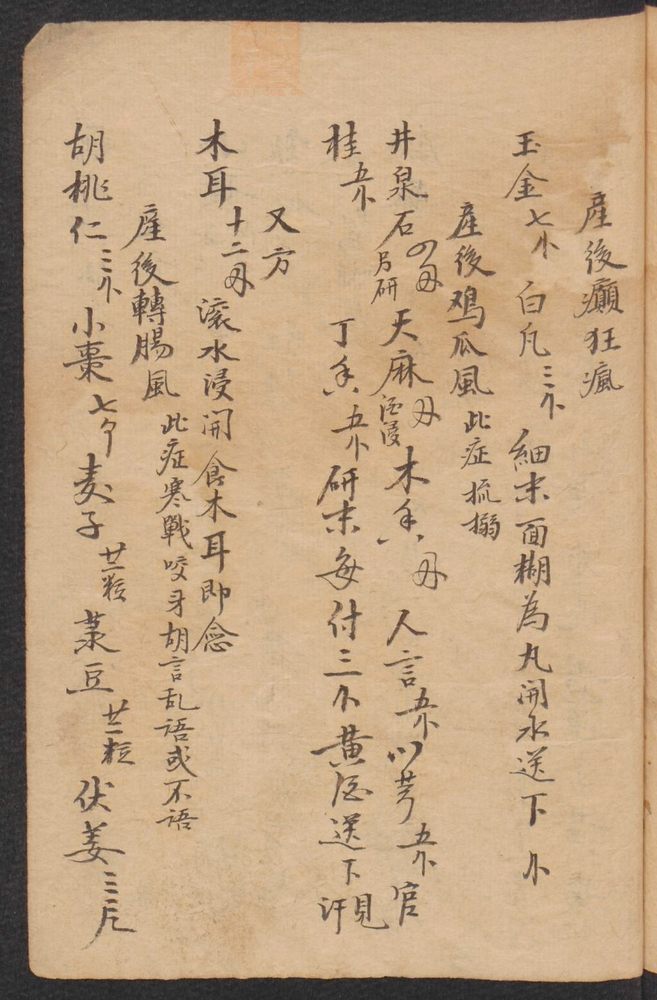 產後癲狂瘋
玉金七卜 白凡三卜 細末面糊為丸開水送下卜
產後鸡瓜風 此症搐搦
井泉石 另研 天麻 酒浸 木香 人言 川芎 官
桂 丁香 研末每付三卜黄酒送下 見汗
又方
木耳十二 滚水浸開食木耳即
產後轉腸風 此症寒戰咬牙胡言乱语或不语
胡桃仁三个 小棗七个 麦子廿一粒 菉豆廿一粒 伏姜三片